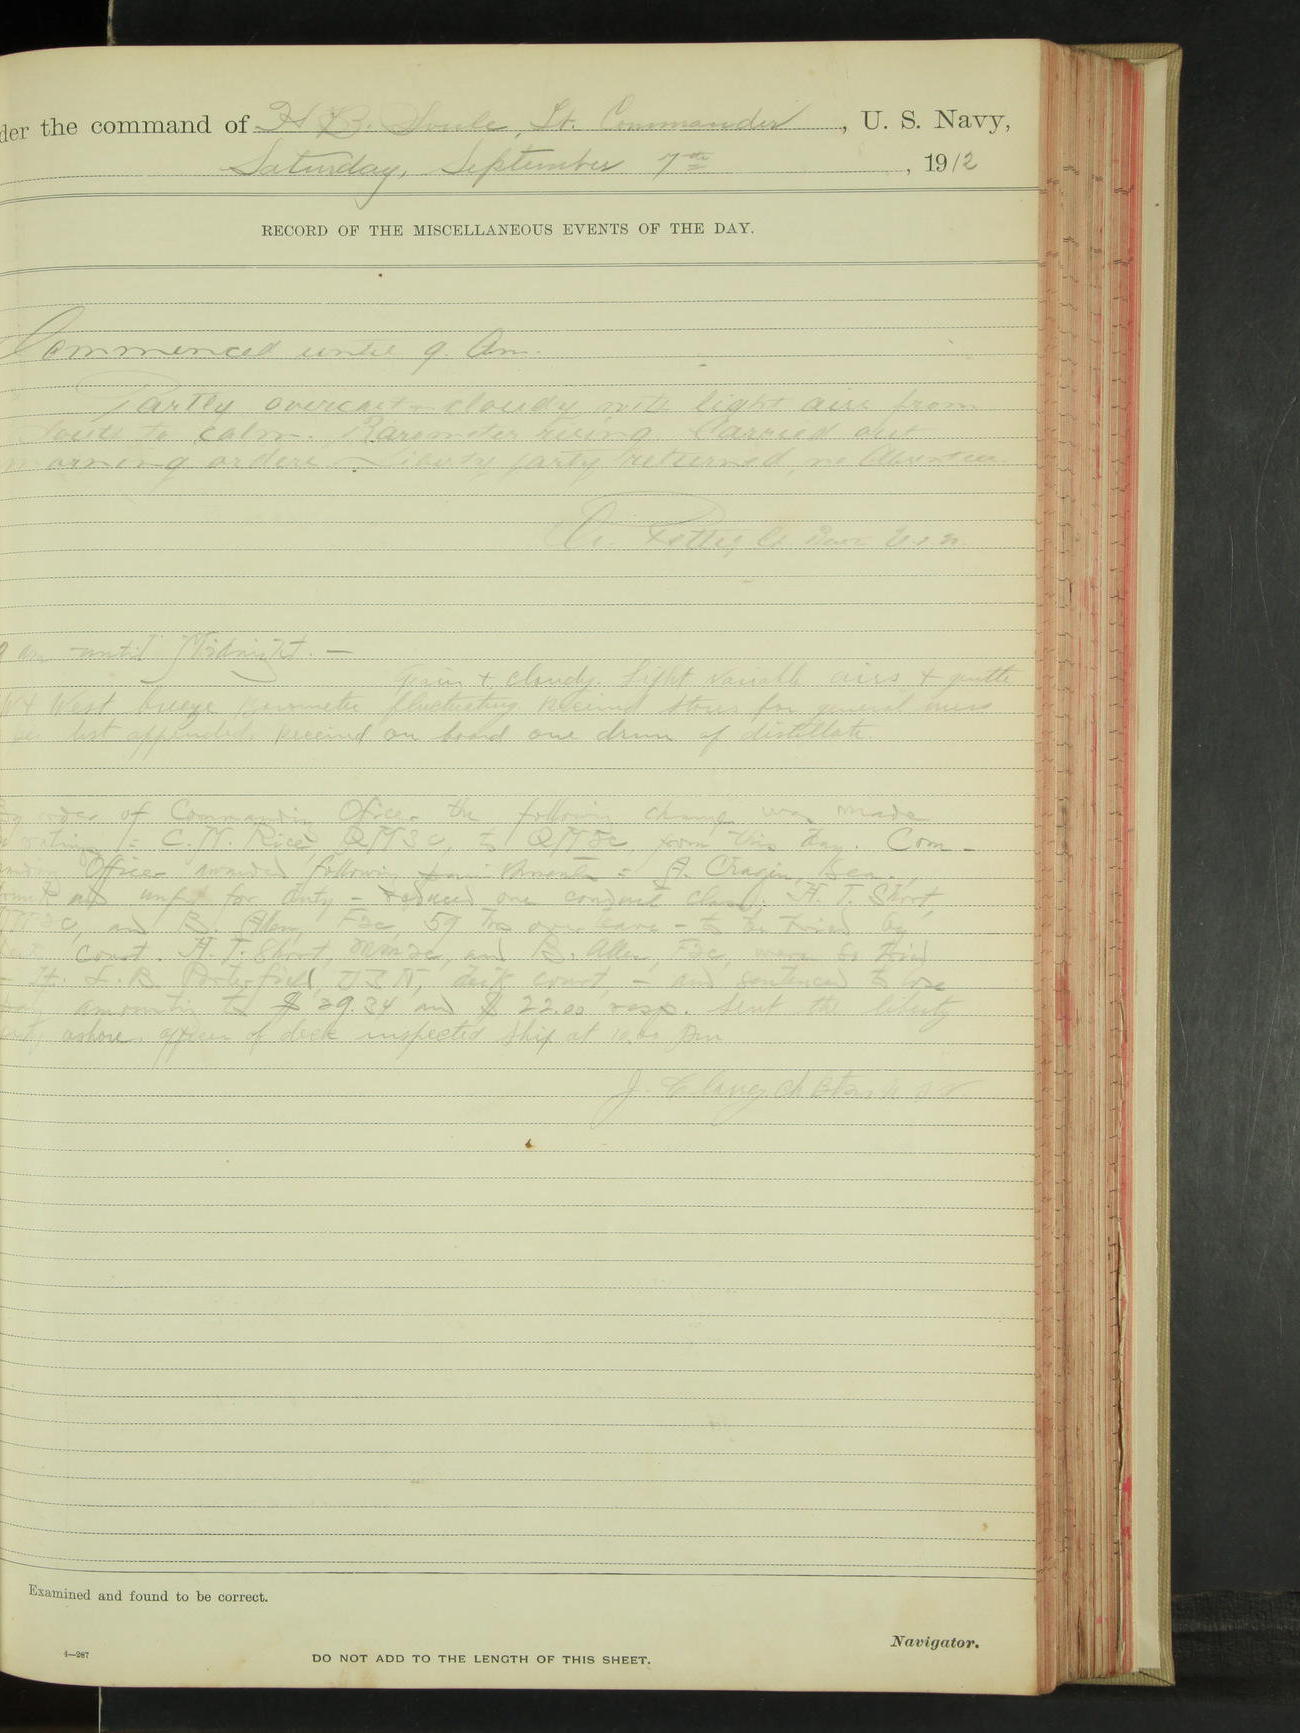 der the command of H. B. Soule, Lt. Commander, U. S. Navy,
Saturday, September 7th, 1912
RECORD OF THE MISCELLANEOUS EVENTS OF THE DAY.
Commenced until 9. Am.
Partly overcast cloudy with light airs from
South to calm. Barometer rising. Carried out
morning orders. Liberty party returned, no Absentees.
U.S.N.
9 am until Midnight. —
+ cloudy. Light variable airs + gentle
West breeze Barometer fluctuating. Received stores for general mess
list appended. Received on board one drum of distillate.
By order of Commanding Officer the following change was made
in rating := C. N. Rice, QM3c, to QM2c, from this day. Com-
manding Officer awarded following = A. Cragin, Sea.,
unfit for duty - reduced one conduct class; H. T. Short,
MM2c, and B. Allen, F2c, 59 hrs over leave - to be tried by
deck court. H. T. Short, MM2c, and B. Allen, F2c, were so tried
- Lt. L. B. Porterfield, USN, deck court, - and sentenced to lose
pay amounting to $ 29.34 and $ 22.00 resp. Sent the liberty
party ashore. officer of deck inspected ship at 10.00 pm
J.
Examined and found to be correct.
Navigator.
4—287
DO NOT ADD TO THE LENGTH OF THIS SHEET.